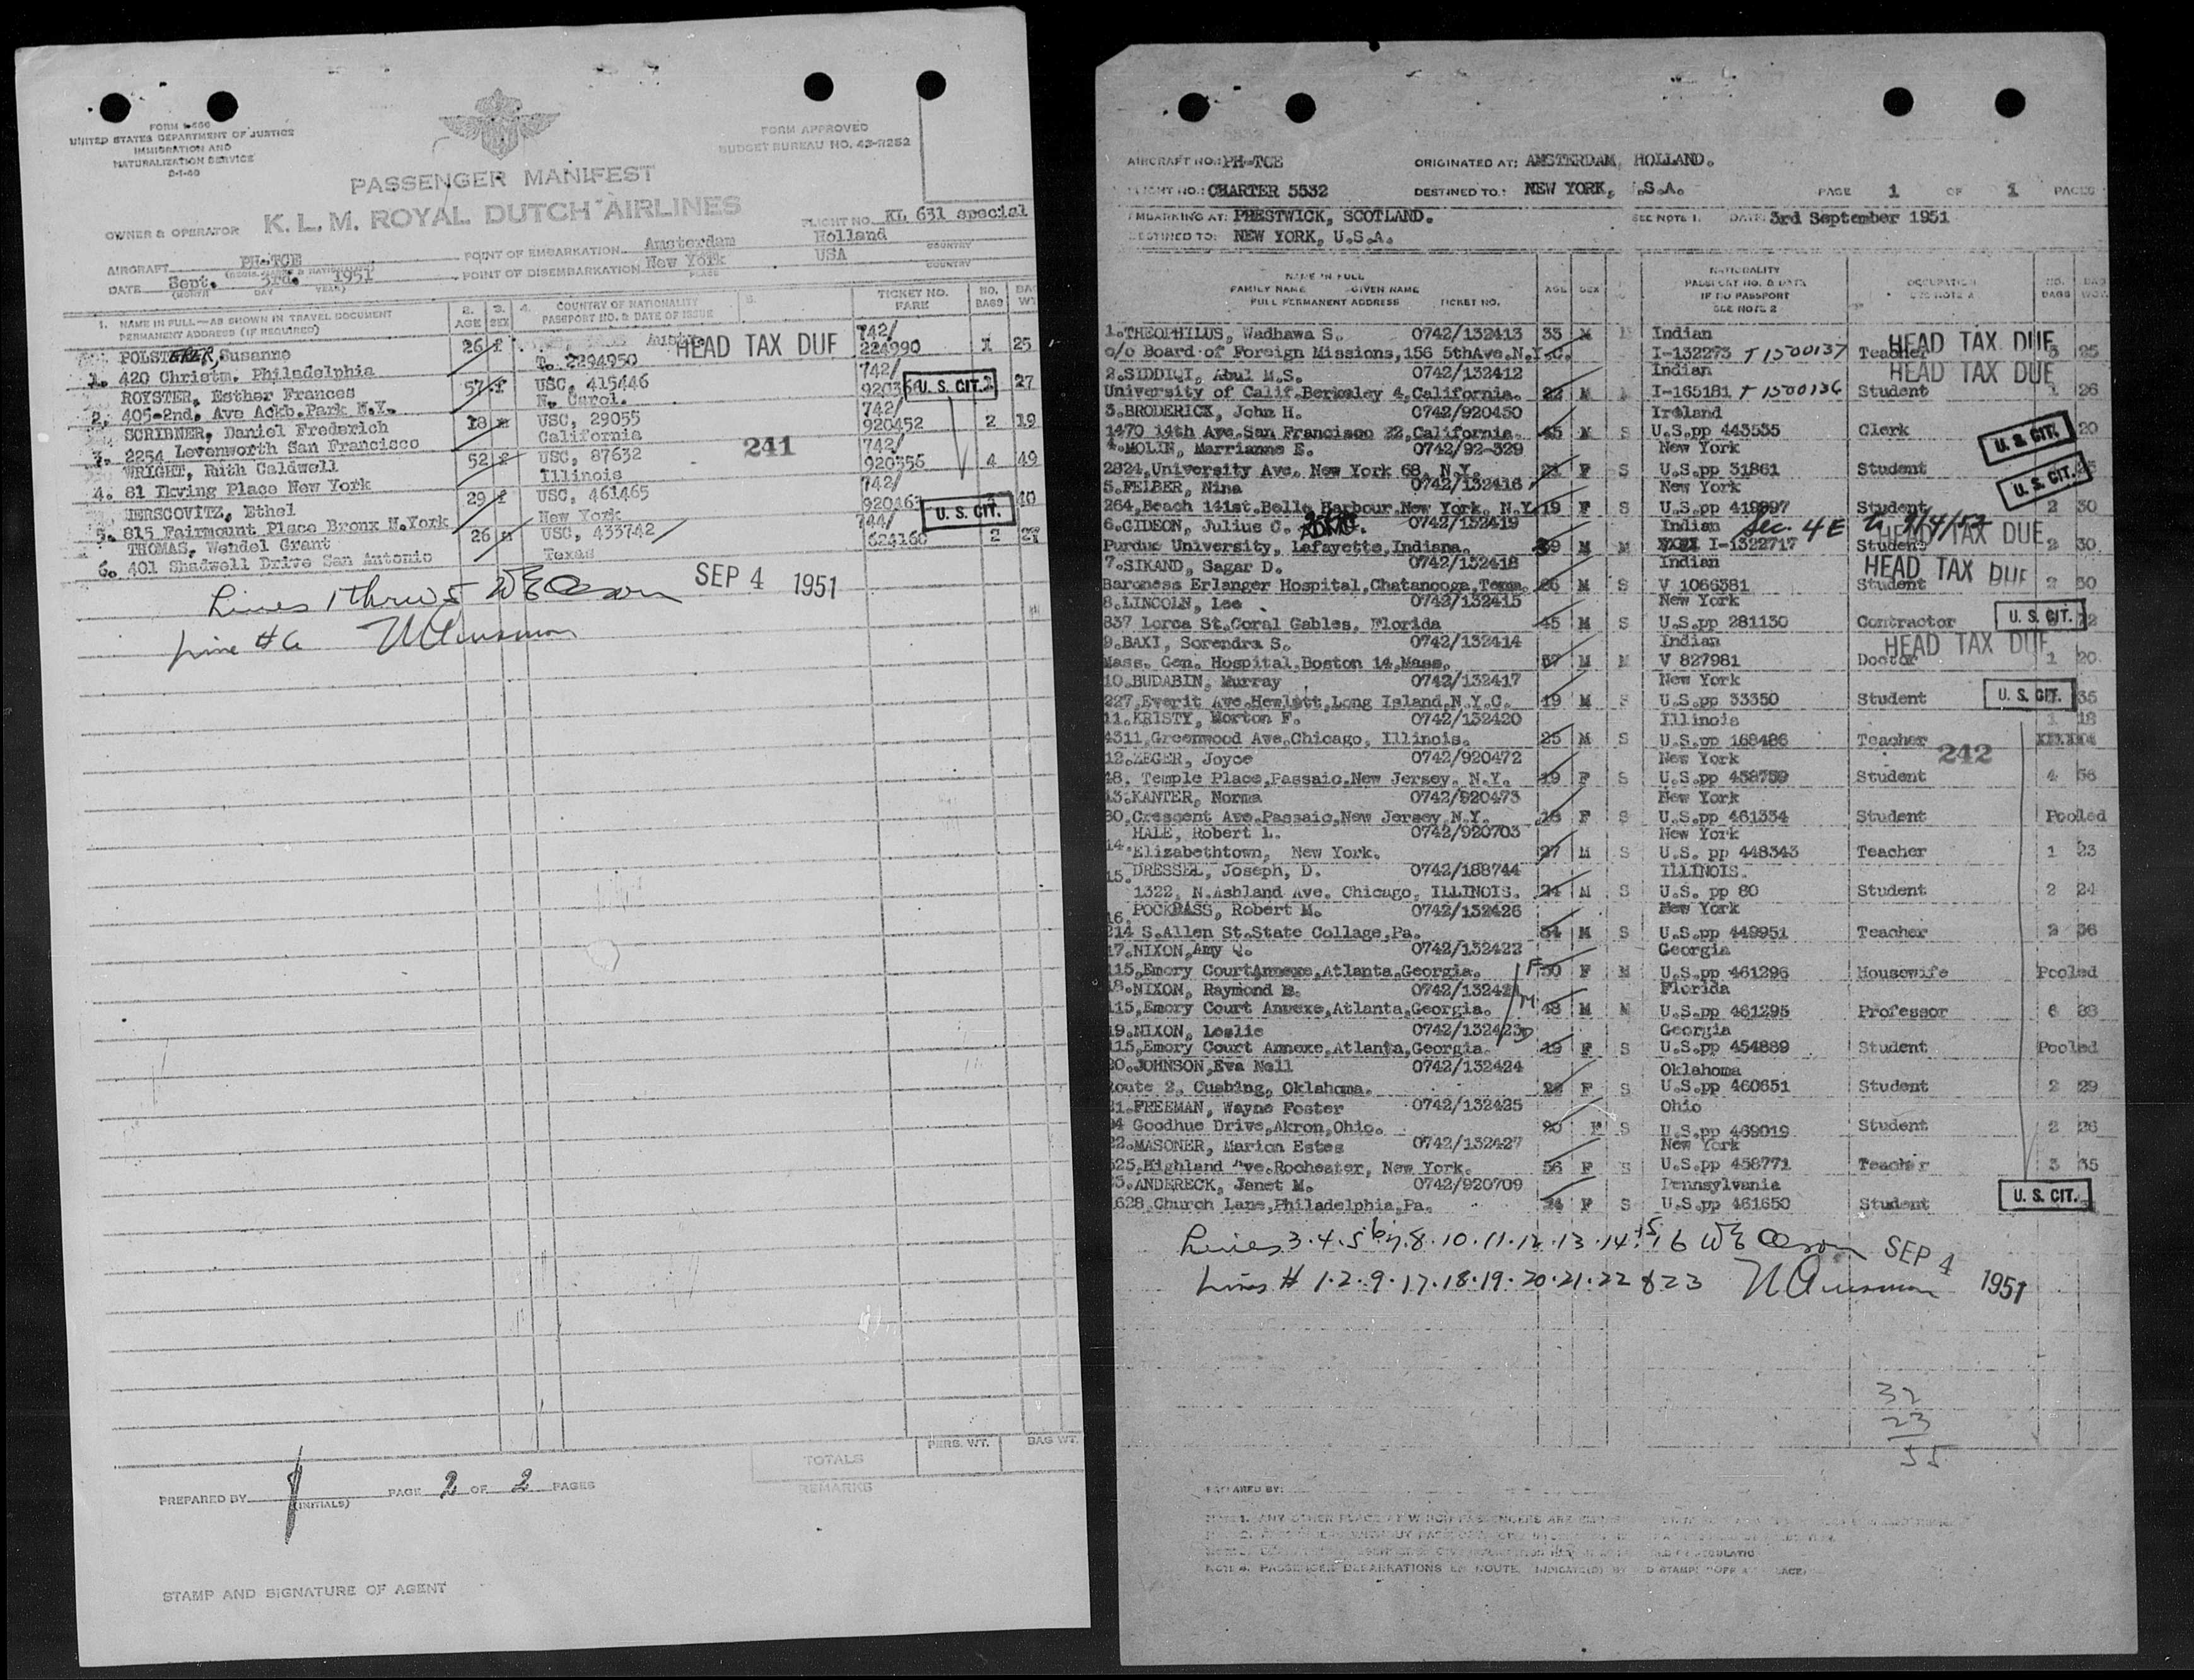 FORM I-466
UNITED STATES DEPARTMENT OF JUSTICE
IMMIGRATION AND
NATURALIZATION SERVICE
FORM APPROVED
BUDGET BUREAU NO. 43-R252
PASSENGER MANIFEST
OWNER & OPERATOR K. L. M. ROYAL DUTCH AIRLINES
FLIGHT NO. KL 631 special
AIRCRAFT PH-TCE
POINT OF EMBARKATION Amsterdam Holland
PLACE COUNTRY
DATE Sept. 3rd. 1951
(MONTH DAY YEAR)
POINT OF DISEMBARKATION New York USA
COUNTRY
1. NAME IN FULL—AS SHOWN IN TRAVEL DOCUMENT
PERMANENT ADDRESS (IF REQUIRED)
2. AGE
3. SEX
4. COUNTRY OF NATIONALITY
PASSPORT NO. & DATE OF ISSUE
5.
TICKET NO.
FARE
NO. BAGS
POLSTERER, Susanne 26 f HEAD TAX DUE 742/
1. 420 Christm. Philadelphia T. 2294950 224990 1 25
ROYSTER, Esther Frances 57 f USC, 415446 742/ U. S. CIT. 27
2. 405-2nd. Ave Ackb.Park N.Y. N. Carol.
SCRIBNER, Daniel Frederich 18 m USC, 29055 742/ 920452 2 19
3. 2254 Levenworth San Francisco California
WRIGHT, Ruth Caldwell 52 f USC, 87632 241 742/ 920356 4 49
4. 81 Irving Place New York Illinois
HERSCOVITZ, Ethel 29 f USC, 461465 742/ U. S. CIT. 40
5. 815 Fairmount Place Bronx N.York New York
THOMAS, Wendel Grant 26 m USC, 433742 744/ 624160 2 27
6. 401 Shadwell Drive San Antonio Texas
Lines 1 thru 5 SEP 4 1951
Line # 6
TOTALS PERS. WT. BAG WT.
REMARKS
PREPARED BY (INITIALS) PAGE 2 OF 2 PAGES
STAMP AND SIGNATURE OF AGENT
AIRCRAFT NO.: PH-TCE ORIGINATED AT: AMSTERDAM, HOLLAND.
FLIGHT NO.: CHARTER 5532 DESTINED TO: NEW YORK, U.S.A. PAGE 1 OF 1 PAGES
EMBARKING AT: PRESTWICK, SCOTLAND. SEE NOTE 1. DATE: 3rd September 1951
DESTINED TO: NEW YORK, U.S.A.
NAME IN FULL
FAMILY NAME GIVEN NAME
FULL PERMANENT ADDRESS TICKET NO.
AGE SEX
NATIONALITY
PASSPORT NO. & DATA
IF NO PASSPORT
SEE NOTE 2
OCCUPATION
SEE NOTE 2
NO. BAGS
1.THEOPHILUS, Wadhawa S. 0742/132413 33 M Indian
c/o Board of Foreign Missions,156 5thAve.N.Y.C. I-132273 T 1500137 Teacher HEAD TAX DUE 25
2.SIDDIQI, Abul M.S. 0742/132412 Indian HEAD TAX DUE
University of Calif.Berkeley 4,California. 22 M I-165181 T 1500136 Student 1 26
3.BRODERICK, John H. 0742/920450 Ireland
1470 14th Ave.San Francisco 22,California. 45 M S U.S.pp 443535 Clerk U. S. CIT. 20
4.MOLIN, Marrianne E. 0742/92-329 New York
2824,University Ave. New York 68, N.Y. 21 F S U.S.pp 31861 Student U. S. CIT.
5.FELBER, Nina 0742/132416 New York
264,Beach 141st.Belle Harbour,New York, N.Y. 19 F S U.S.pp 419997 Student 2 30
6.GIDEON, Julius C. 0742/132419 Indian Sec. 4 E
Purdue University, Lafayette,Indiana. 39 M M I-1322717 Student HEAD TAX DUE 2 30
7.SIKAND, Sagar D. 0742/132418 Indian
Baroness Erlanger Hospital,Chatanooga,Tenn. 26 M S V 1066381 Student HEAD TAX DUE 2 30
8.LINCOLN, Lee 0742/132415 New York
837 Lorca St.Coral Gables, Florida 45 M S U.S.pp 281130 Contractor U. S. CIT.
9.BAXI, Sorendra S. 0742/132414 Indian
Mass. Gen. Hospital,Boston 14,Mass. 37 M M V 827981 Doctor HEAD TAX DUE 1 20
10.BUDABIN, Murray 0742/132417 New York
227,Everit Ave.Hewlett,Long Island,N.Y.C. 19 M S U.S.pp 33350 Student U. S. CIT. 35
11.KRISTY, Morton F. 0742/132420 Illinois 1 18
4311,Greenwood Ave,Chicago, Illinois. 25 M S U.S.pp 168486 Teacher
12.ZEGER, Joyce 0742/920472 New York 242
48, Temple Place,Passaic,New Jersey, N.Y. 19 F S U.S.pp 458759 Student 4 56
13.KANTER, Norma 0742/920473 New York
30,Crescent Ave.Passaic,New Jersey,N.Y. 18 F S U.S.pp 461334 Student Pooled
HALE, Robert L. 0742/920703 New York
14. Elizabethtown, New York. 27 M S U.S. pp 448343 Teacher 1 23
15. DRESSEL, Joseph, D. 0742/188744 ILLINOIS.
1322, N.Ashland Ave. Chicago, ILLINOIS. 24 M S U.S. pp 80 Student 2 24
16. POCKRASS, Robert M. 0742/132426 New York
214 S.Allen St.State Collage,Pa. 34 M S U.S.pp 449951 Teacher 2 36
17.NIXON,Amy Q. 0742/132422 Georgia
115,Emory CourtAnnexe,Atlanta,Georgia. F 50 F M U.S.pp 461296 Housewife Pooled
18.NIXON, Raymond B. 0742/132421 Florida
115,Emory Court Annexe,Atlanta,Georgia. M 48 M M U.S.pp 461295 Professor 6 88
19.NIXON, Leslie 0742/132423 D Georgia
115,Emory Court Annexe,Atlanta,Georgia. 19 F S U.S.pp 454889 Student Pooled
20.JOHNSON,Eva Nell 0742/132424 Oklahoma
Route 2, Cushing, Oklahoma. 28 F S U.S.pp 460651 Student 2 29
21.FREEMAN, Wayne Foster 0742/132425 Ohio
Goodhue Drive,Akron,Ohio. 20 F S U.S.pp 469019 Student 2 26
22.MASONER, Marion Estes 0742/132427 New York
525,Highland Ave.Rochester, New York. 56 F S U.S.pp 458771 Teacher 3 35
23.ANDERECK, Janet M. 0742/920709 Pennsylvania
1628,Church Lane,Philadelphia,Pa. 24 F S U.S.pp 461650 Student U. S. CIT.
Lines 3.4.5 6 7.8.10.11.12.13.14.15.16 SEP 4 1951
Lines # 1.2.9.17.18.19.20.21.22 & 23
32
23
55
PREPARED BY: